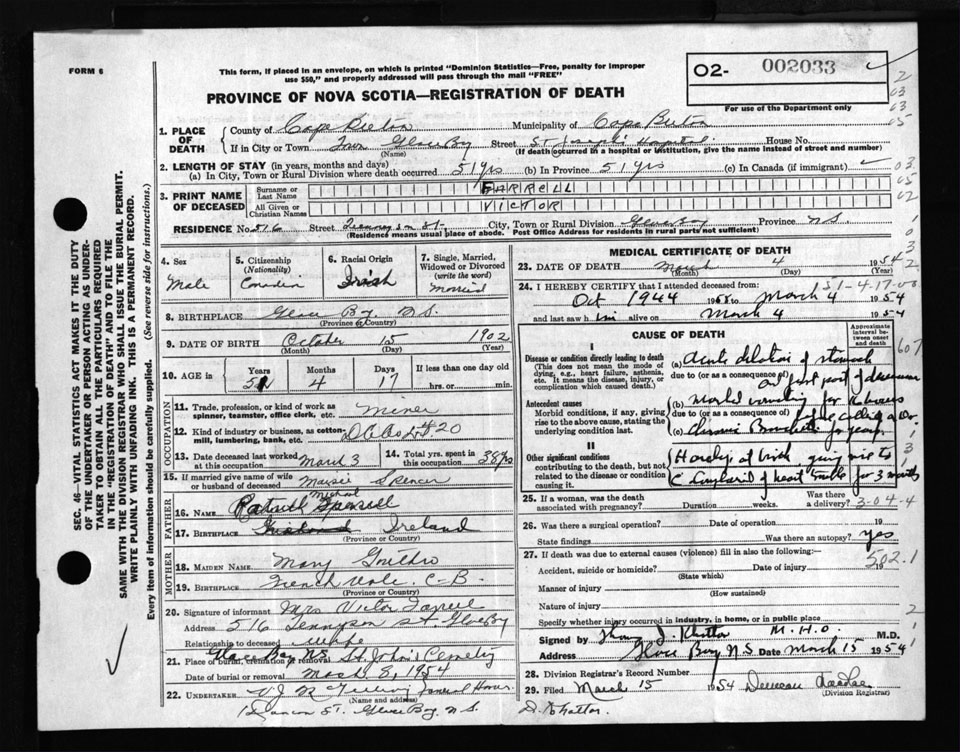 FORM 6
This form, if placed in an envelope, on which is printed "Dominion Statistics—Free, penalty for improper
use $50," and properly addressed will pass through the mail "FREE"
O2- 002033
For use of the Department only
PROVINCE OF NOVA SCOTIA—REGISTRATION OF DEATH
SEC. 46—VITAL STATISTICS ACT MAKES IT THE DUTY
OF THE UNDERTAKER OR PERSON ACTING AS UNDER-
TAKER TO OBTAIN ALL THE PARTICULARS REQUIRED
IN THE "REGISTRATION OF DEATH" AND TO FILE THE
SAME WITH THE DIVISION REGISTRAR WHO SHALL ISSUE THE BURIAL PERMIT.
WRITE PLAINLY WITH UNFADING INK. THIS IS A PERMANENT RECORD.
Every item of information should be carefully supplied. (See reverse side for instructions.)
1. PLACE OF DEATH
County of Cape Breton Municipality of Cape Breton
If in City or Town Town Glace Bay Street St Joseph's Hospital House No.
(Name) (If death occurred in a hospital or institution, give the name instead of street and number)
2. LENGTH OF STAY (in years, months and days)
(a) In City, Town or Rural Division where death occurred 51 yrs (b) In Province 51 yrs (c) In Canada (if immigrant)
3. PRINT NAME OF DECEASED
Surname or Last Name FARRELL
All Given or Christian Names VICTOR
RESIDENCE No. 516 Street Tennyson St. City, Town or Rural Division Glace Bay Province N.S.
(Residence means usual place of abode. Post Office Address for residents in rural parts not sufficient)
4. Sex Male
5. Citizenship (Nationality) Canadian
6. Racial Origin Irish
7. Single, Married, Widowed or Divorced (write the word) Married
8. BIRTHPLACE Glace Bay N.S.
(Province or Country)
9. DATE OF BIRTH October 15 1902
(Month) (Day) (Year)
10. AGE in Years Months Days If less than one day
51 4 17 hrs. or min.
OCCUPATION
11. Trade, profession, or kind of work as spinner, teamster, office clerk, etc. Miner
12. Kind of industry or business, as cotton-mill, lumbering, bank, etc. #20
13. Date deceased last worked at this occupation March 3
14. Total yrs. spent in this occupation 38 yrs
15. If married give name of wife or husband of deceased Maisie Spencer
FATHER
16. NAME Patrick Michael
17. BIRTHPLACE Ireland
(Province or Country)
MOTHER
18. MAIDEN NAME Mary
19. BIRTHPLACE French Vale C-B.
(Province or Country)
20. Signature of informant Mrs Victor Farrell
Address 516 Tennyson St Glace Bay
Relationship to deceased wife
21. Place of burial, cremation or removal Glace Bay N.S. St. John's Cemetery
Date of burial or removal March 8, 1954
22. UNDERTAKER V J Funeral Home
(Name and address)
St. Glace Bay, N.S.
MEDICAL CERTIFICATE OF DEATH
23. DATE OF DEATH March 4 1954
(Month) (Day) (Year)
24. I HEREBY CERTIFY that I attended deceased from:
Oct 1944 to March 4 1954
and last saw him alive on March 4 1954
CAUSE OF DEATH
Approximate interval between onset and death
I
Disease or condition directly leading to death
(This does not mean the mode of dying, e.g., heart failure, asthenia, etc. It means the disease, injury, or complication which caused death.)
(a) Acute dilation of stomach
due to (or as a consequence of)
Antecedent causes
Morbid conditions, if any, giving rise to the above cause, stating the underlying condition last.
(b) Marked vomiting for 16 hours
due to (or as a consequence of) before calling a Dr.
(c) Chronic Bronchitis for years
II
Other significant conditions contributing to the death, but not related to the disease or condition causing it.
of heart trouble for 3 months
25. If a woman, was the death associated with pregnancy? Duration weeks. Was there a delivery?
3-04-4
26. Was there a surgical operation? Date of operation 19
State findings Was there an autopsy? Yes
27. If death was due to external causes (violence) fill in also the following:—
Accident, suicide or homicide? Date of injury 19
(State which)
502.1
Manner of injury
(How sustained)
Nature of injury
Specify whether injury occurred in industry, in home, or in public place
Signed by M.H.O. M.D.
Address Glace Bay N.S. Date March 15 1954
28. Division Registrar's Record Number
29. Filed March 15 1954 Duncan
(Division Registrar)